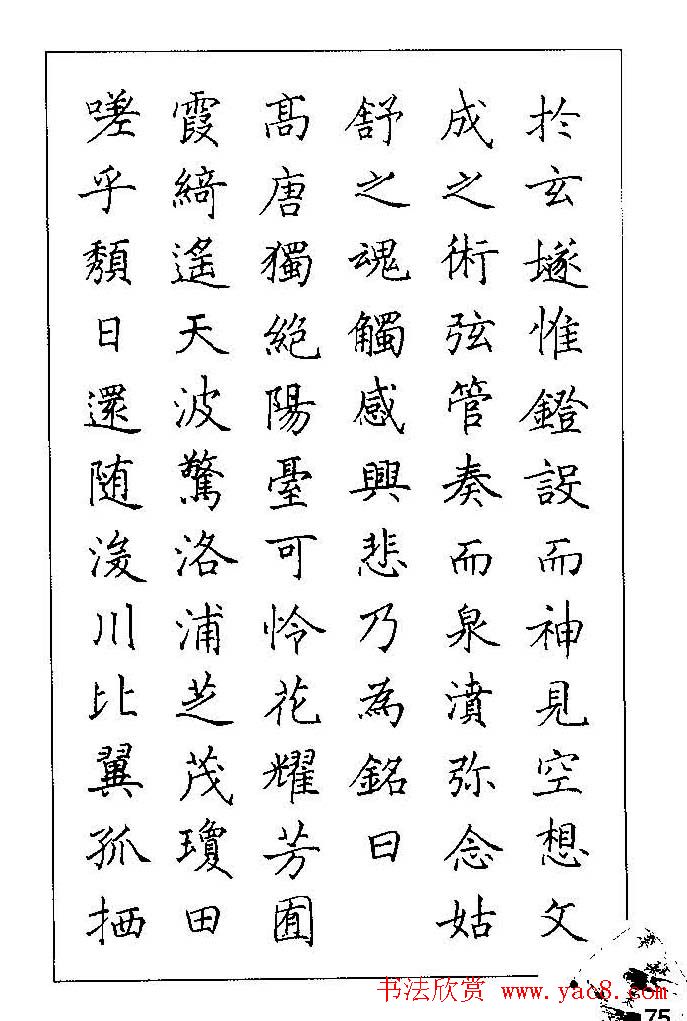 扵玄墜惟鐙設而神見空想文
成之術弦管奏而泉濆弥念姑
舒之魂觸感興悲乃為銘曰
髙唐獨絶陽臺可怜花耀芳囿
霞綺遙天波驚洛浦芝茂瓊田
嗟乎頽日還随浚川比翼孤栖
书法欣赏 www.yac8.com
75